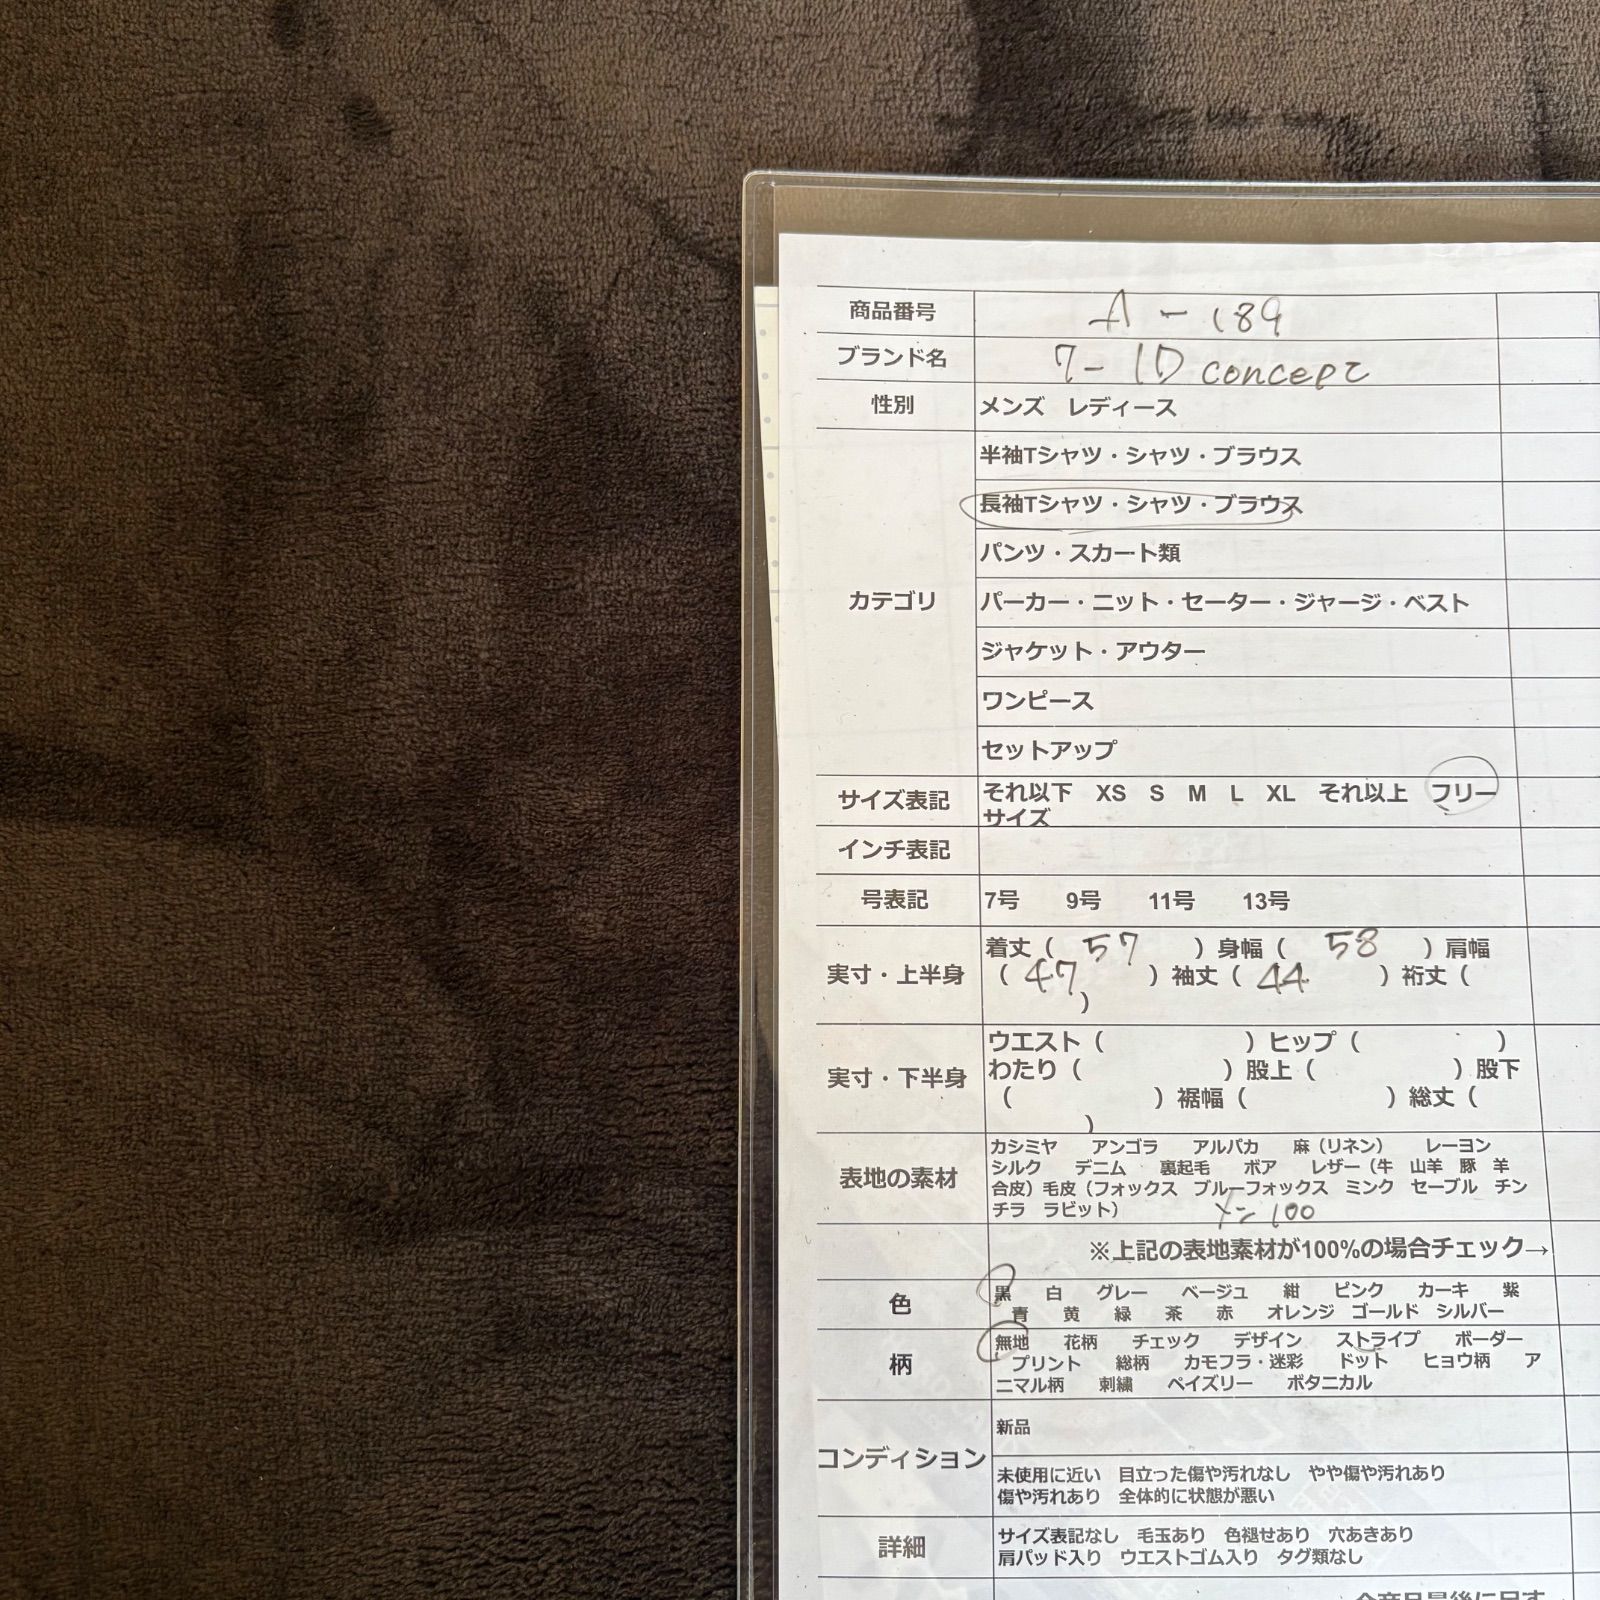 商品番号 A-189
ブランド名 7-ID concept
性別 メンズ レディース
カテゴリ
半袖Tシャツ・シャツ・ブラウス
長袖Tシャツ・シャツ・ブラウス
パンツ・スカート類
パーカー・ニット・セーター・ジャージ・ベスト
ジャケット・アウター
ワンピース
セットアップ
サイズ表記 それ以下 XS S M L XL それ以上 フリー
サイズ
インチ表記
号表記 7号 9号 11号 13号
実寸・上半身 着丈( 57 )身幅( 58 )肩幅
( 47 )袖丈( 44 )裄丈(
)
実寸・下半身 ウエスト( )ヒップ( )
わたり( )股上( )股下
( )裾幅( )総丈(
)
表地の素材 カシミヤ アンゴラ アルパカ 麻(リネン) レーヨン
シルク デニム 裏起毛 ボア レザー(牛 山羊 豚 羊
合皮)毛皮(フォックス ブルーフォックス ミンク セーブル チン
チラ ラビット) 100
※上記の表地素材が100%の場合チェック→
色 黒 白 グレー ベージュ 紺 ピンク カーキ 紫
青 黄 緑 茶 赤 オレンジ ゴールド シルバー
柄 無地 花柄 チェック デザイン ストライプ ボーダー
プリント 総柄 カモフラ・迷彩 ドット ヒョウ柄 ア
ニマル柄 刺繍 ペイズリー ボタニカル
コンディション 新品
未使用に近い 目立った傷や汚れなし やや傷や汚れあり
傷や汚れあり 全体的に状態が悪い
詳細 サイズ表記なし 毛玉あり 色褪せあり 穴あきあり
肩パッド入り ウエストゴム入り タグ類なし